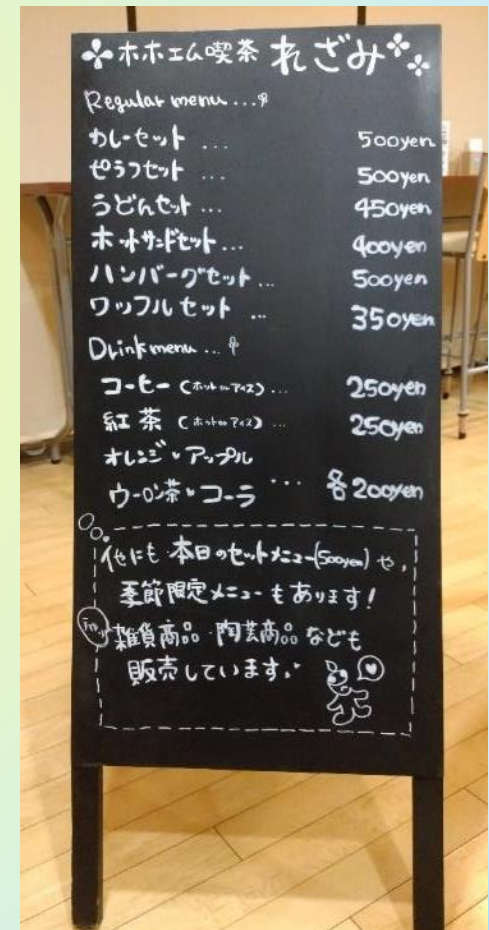 ホホエム喫茶 れざみ
Regular menu ...
カレーセット ... 500yen
ピラフセット ... 500yen
うどんセット ... 450yen
ホットサンドセット ... 400yen
ハンバーグセット ... 500yen
ワッフルセット ... 350yen
Drink menu ...
コーヒー (ホット or アイス) ... 250yen
紅茶 (ホット or アイス) ... 250yen
オレンジ・アップル
ウーロン茶・コーラ ... 各200yen
他にも 本日のセットメニュー(500yen) や、
季節限定メニューもあります!
雑貨商品・陶芸商品なども
販売しています。